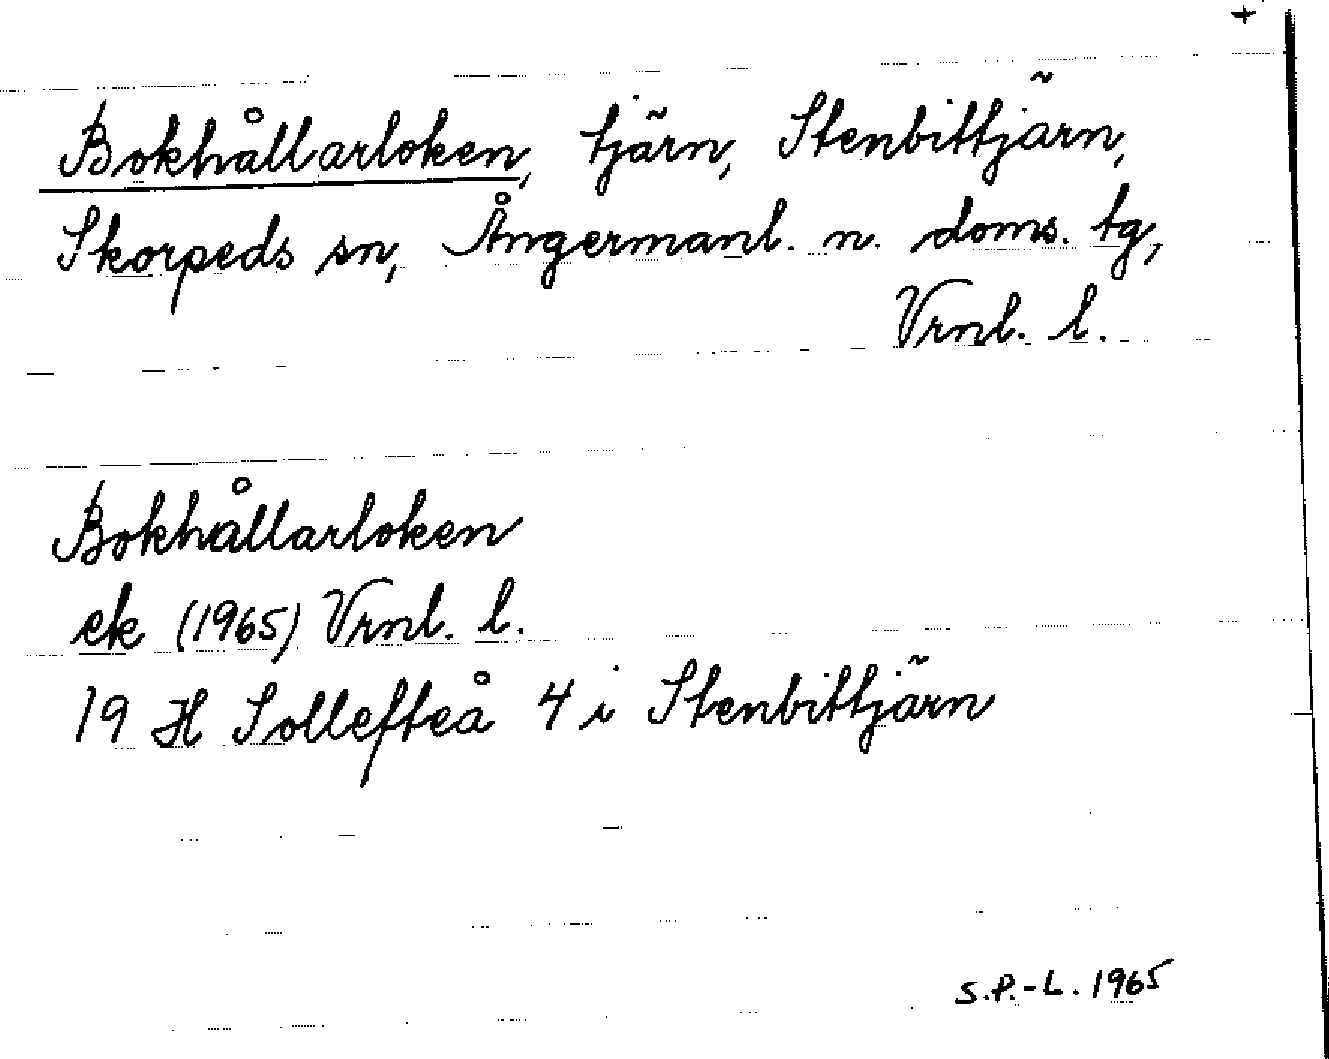 +
Bokhållarloken, tjärn, Stenbittjärn,
Skorpeds sn, Ångermanl. n. doms. tg,
Vrnl. l.
Bokhållarloken
ek (1965) Vrnl. l.
19 H Sollefteå 4 i Stenbittjärn
S.P.-L. 1965